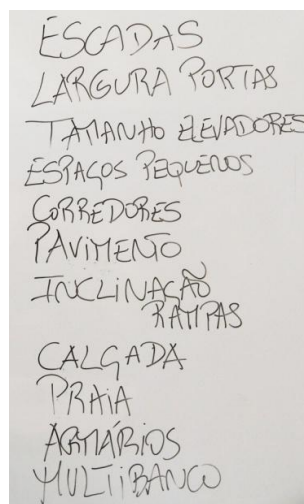 ESCADAS
LARGURA PORTAS
TAMANHO ELEVADORES
ESPAÇOS PEQUENOS
CORREDORES
PAVIMENTO
INCLINAÇÃO
RAMPAS
CALÇADA
PRAIA
ARMÁRIOS
MULTIBANCO